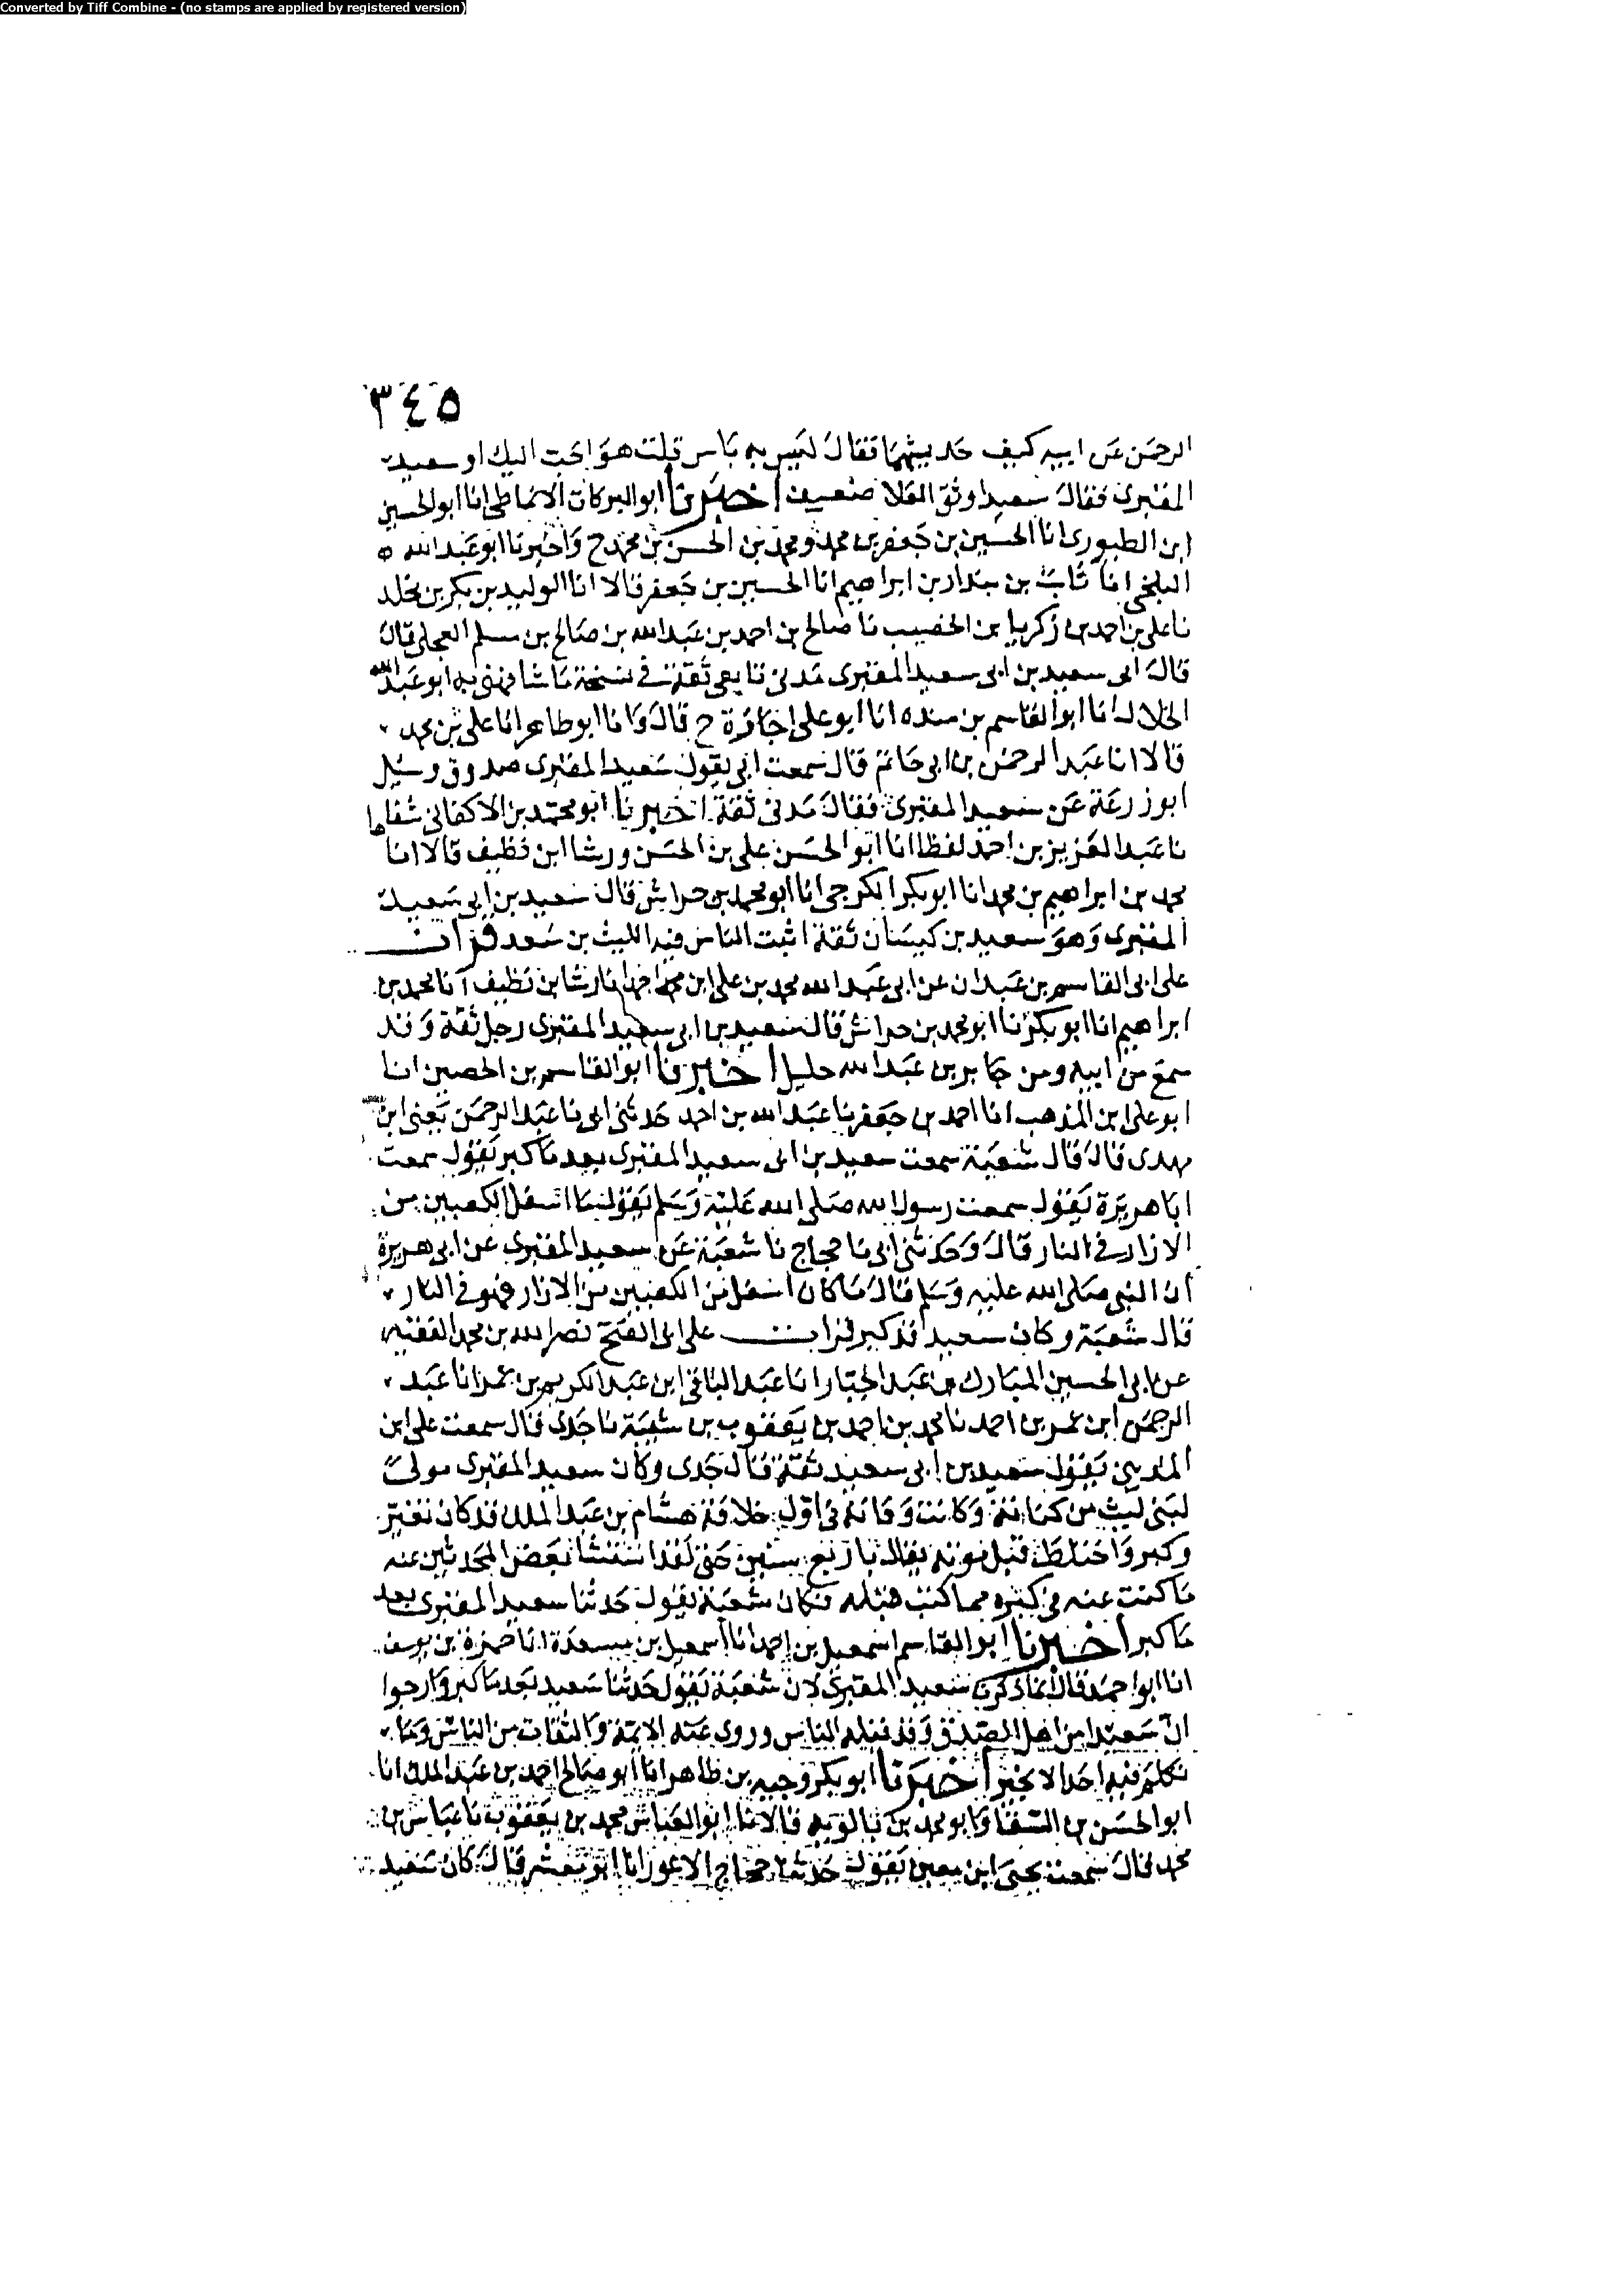 Converted by Tiff Combine - (no stamps are applied by registered version)
٣٤٥
الرحمن عن ابيه كيف حديثهما فقال ليس به باس قلت هو احب اليك او سعيد
المقبرى فقال سعيد اوثق العلا ضعيف اخبرنا ابو البركات الانماطى انا ابو الحسين
ابن الطيورى انا الحسين بن جعفر بن محمد ومحمد بن الحسن بن محمد ح واخبرنا ابو عبد الله
البلخى انا ثابت بن بندار بن ابراهيم انا الحسين بن جعفر قالا انا الوليد بن بكر بن مخلد
نا على بن احمد بن زكريا بن الخصيب نا صالح بن احمد بن عبد الله بن صالح بن مسلم العجلى قال
قال ابى سعيد بن ابى سعيد المقبرى مدنى تابعى ثقة فى نسخة ما شافهنى به ابو عبد الله
الخلال انا ابو القاسم بن منده انا ابو على اجازة ح قال وانا ابو طاهر انا على بن محمد
قالا انا عبد الرحمن بن ابى حاتم قال سمعت ابى يقول سعيد المقبرى صدوق وسئل
ابو زرعة عن سعيد المقبرى فقال مدنى ثقة اخبرنا ابو محمد بن الاكفانى شفاها
نا عبد العزيز بن احمد لفظا انا ابو الحسن على بن الحسن ورشا ابن نظيف قالا انا
محمد بن ابراهيم بن محمد انا ابو بكر الكرجى انا ابو محمد بن خراش قال سعيد بن ابى سعيد
المقبرى وهو سعيد بن كيسان ثقة اثبت الناس فيه الليث بن سعد قرات
على ابى القاسم بن عبدان عن ابى عبد الله محمد بن على ابن محمد انا رشا بن نظيف انا محمد بن
ابراهيم انا ابو بكر نا ابو محمد بن خراش قال سعيد بن ابى سعيد المقبرى رجل ثقة وقد
سمع من ابيه ومن جابر بن عبد الله جليل اخبرنا ابو القاسم بن الحصين انا
ابو على ابن المذهب انا احمد بن جعفر نا عبد الله بن احمد حدثنى ابى نا عبد الرحمن يعنى ابن
مهدى قال قال شعبة سمعت سعيد بن ابى سعيد المقبرى بعد ما كبر يقول سمعت
ابا هريرة يقول سمعت رسول الله صلى الله عليه وسلم يقول ما اسفل الكعبين من
الازار فى النار قال وحدثنى ابى نا حجاج نا شعبة عن سعيد المقبرى عن ابى هريرة
ان النبى صلى الله عليه وسلم قال ما كان اسفل من الكعبين من الازار فهو فى النار
قال شعبة وكان سعيد قد كبر قرات على ابى الفتح نصر الله بن محمد الفقيه
عن ابى الحسين المبارك بن عبد الجبار انا عبد الباقى ابن عبد الكريم بن عمر انا عبد
الرحمن ابن عمر بن احمد نا محمد بن احمد بن يعقوب بن شيبة نا جدى قال سمعت على ابن
المدينى يقول سعيد بن ابى سعيد ثقة قال جدى وكان سعيد المقبرى مولى
لبنى ليث من كنانة وكانت وفاته فى اول خلافة هشام بن عبد الملك قد كان تغير
وكبر واختلط قبل موته يقال باربع سنين حتى لقد استثنى بعض المحدثين عنه
ما كتب عنه فى كبره مما كتب قبله فكان شعبة يقول حدثنا سعيد المقبرى بعد
ما كبر اخبرنا ابو القاسم اسمعيل بن احمد انا اسمعيل بن مسعدة انا حمزة بن يوسف
انا ابو احمد قال انما ذكرت سعيد المقبرى لان شعبة يقول حدثنا سعيد بعد ما كبر وارجوا
ان سعيدا من اهل الصدق وقد قبله الناس وروى عنه الايمة والثقات من الناس وما
تكلم فيه احد الا بخير اخبرنا ابو بكر وجيه بن طاهر انا ابو صالح احمد بن عبد الملك انا
ابو الحسن بن السقا وابو محمد بن بالويه قالا نا ابو العباس محمد بن يعقوب نا عباس بن
محمد قال سمعت يحيى ابن معين يقول حدثنا حجاج الاعور انا ابو معشر قال كان سعيد